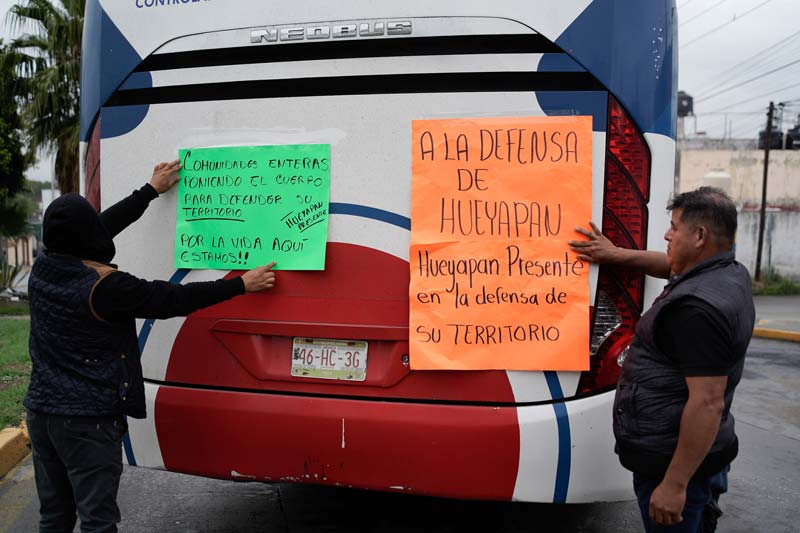 CONTROLA
NEOBUS
COMUNIDADES ENTERAS
PONIENDO EL CUERPO
PARA DEFENDER SU
TERRITORIO
HUEYAPAN
PRESENTE
POR LA VIDA AQUÍ
ESTAMOS!!
A LA DEFENSA
DE
HUEYAPAN
Hueyapan Presente
en la defensa de
SU TERRITORIO
46-HC-3G